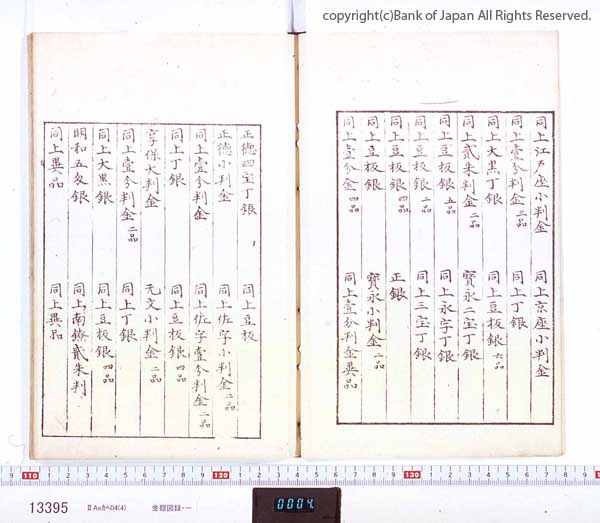 copyright(c)Bank of Japan All Rights Reserved.
同上江戸座小判金 同上京座小判金
同上壹分判金 三品 同上丁銀
同上大黒丁銀 同上豆板銀 六品
同上貳朱判金 二品 寳永二宝丁銀
同上豆板銀 五品 同上永字丁銀
同上豆板銀 二品 同上三宝丁銀
同上豆板銀 四品 正銀
同上豆板銀 寳永小判金 二品
同上壹分金 四品 同上壹分判金異品
正徳四宝丁銀 同上豆板
正徳小判金 同上佐字小判金 二品
同上壹分判金 同上佐字壹分判金 二品
同上丁銀 同上豆板銀 四品
享保大判金 元文小判金 二品
同上壹分判金 二品 同上丁銀
同上大黒銀 同上豆板銀 四品
明和五匁銀 同上南鐐貳朱判
同上異品 同上異品
110 120 130
13395 ⅡAaカヘロ4(4) 金銀図録・一
0004